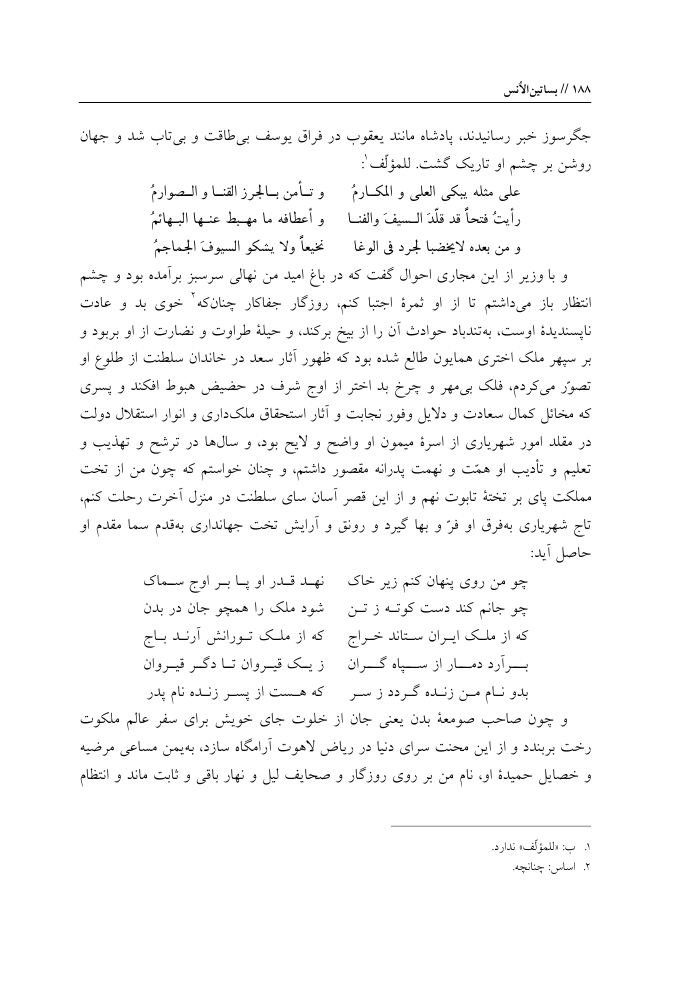 ۱۸۸ // بساتین‌الأنس
جگرسوز خبر رسانیدند، پادشاه مانند یعقوب در فراق یوسف بی‌طاقت و بی‌تاب شد و جهان
روشن بر چشم او تاریک گشت. للمؤلّف۱:
علی مثله یبکی العلی و المکــارمُ و تــأمن بــالجرز القنــا و الــصوارمُ
رأیتُ فتحاً قد قلّدَ الــسیفَ والقنــا و أعطافه ما مهــبط عنــها البــهائمُ
و من بعده لایخضبا لجرد فی الوغا نخیعاً ولا یشکو السیوفَ الجماجمُ
و با وزیر از این مجاری احوال گفت که در باغ امید من نهالی سرسبز برآمده بود و چشم
انتظار باز می‌داشتم تا از او ثمرهٔ اجتبا کنم، روزگار جفاکار چنان‌که۲ خوی بد و عادت
ناپسندیدهٔ اوست، به‌تندباد حوادث آن را از بیخ برکند، و حیلهٔ طراوت و نضارت از او بربود و
بر سپهر ملک اختری همایون طالع شده بود که ظهور آثار سعد در خاندان سلطنت از طلوع او
تصوّر می‌کردم، فلک بی‌مهر و چرخ بد اختر از اوج شرف در حضیض هبوط افکند و پسری
که مخائل کمال سعادت و دلایل وفور نجابت و آثار استحقاق ملک‌داری و انوار استقلال دولت
در مقلد امور شهریاری از اسرهٔ میمون او واضح و لایح بود، و سال‌ها در ترشح و تهذیب و
تعلیم و تأدیب او همّت و نهمت پدرانه مقصور داشتم، و چنان خواستم که چون من از تخت
مملکت پای بر تختهٔ تابوت نهم و از این قصر آسان سای سلطنت در منزل آخرت رحلت کنم،
تاج شهریاری به‌فرق او فرّ و بها گیرد و رونق و آرایش تخت جهانداری به‌قدم سما مقدم او
حاصل آید:
چو من روی پنهان کنم زیر خاک نهــد قــدر او پــا بــر اوج ســماک
چو جانم کند دست کوتــه ز تــن شود ملک را همچو جان در بدن
که از ملــک ایــران ســتاند خــراج که از ملــک تــورانش آرنــد بــاج
بــرآرد دمــار از ســپاه گــران ز یــک قیــروان تــا دگــر قیــروان
بدو نــام مــن زنــده گــردد ز ســر که هــست از پســر زنــده نام پدر
و چون صاحب صومعهٔ بدن یعنی جان از خلوت جای خویش برای سفر عالم ملکوت
رخت بربندد و از این محنت سرای دنیا در ریاض لاهوت آرامگاه سازد، به‌یمن مساعی مرضیه
و خصایل حمیدهٔ او، نام من بر روی روزگار و صحایف لیل و نهار باقی و ثابت ماند و انتظام
۱. ب: «للمؤلّف» ندارد.
۲. اساس: چنانچه.